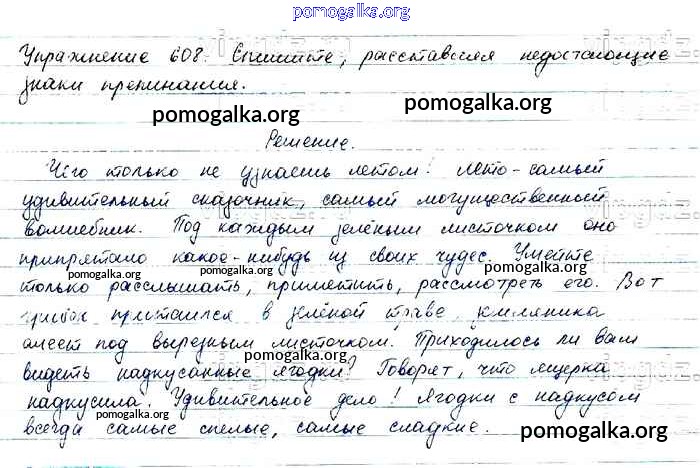 pomogalka.org
Упражнение 608. Спишите, расставляя недостающие
знаки препинания.
pomogalka.org
pomogalka.org
Решение.
Чего только не узнаешь летом! Лето - самый
удивительный сказочник, самый могущественный
волшебник. Под каждым зелёным листочком оно
припрятало какое-нибудь из своих чудес. Умейте
pomogalka.org
pomogalka.org
pomogalka.org
только расслышать, приметить, рассмотреть его. Вот
грибок притаился в зелёной траве, земляника
алеет под вырезным листочком. Приходилось ли вам
pomogalka.org
видеть надкусанные ягодки? Говорят, что ящерка
надкусила. Удивительное дело! Ягодки с надкусом
pomogalka.org
всегда самые спелые, самые сладкие.
pomogalka.org